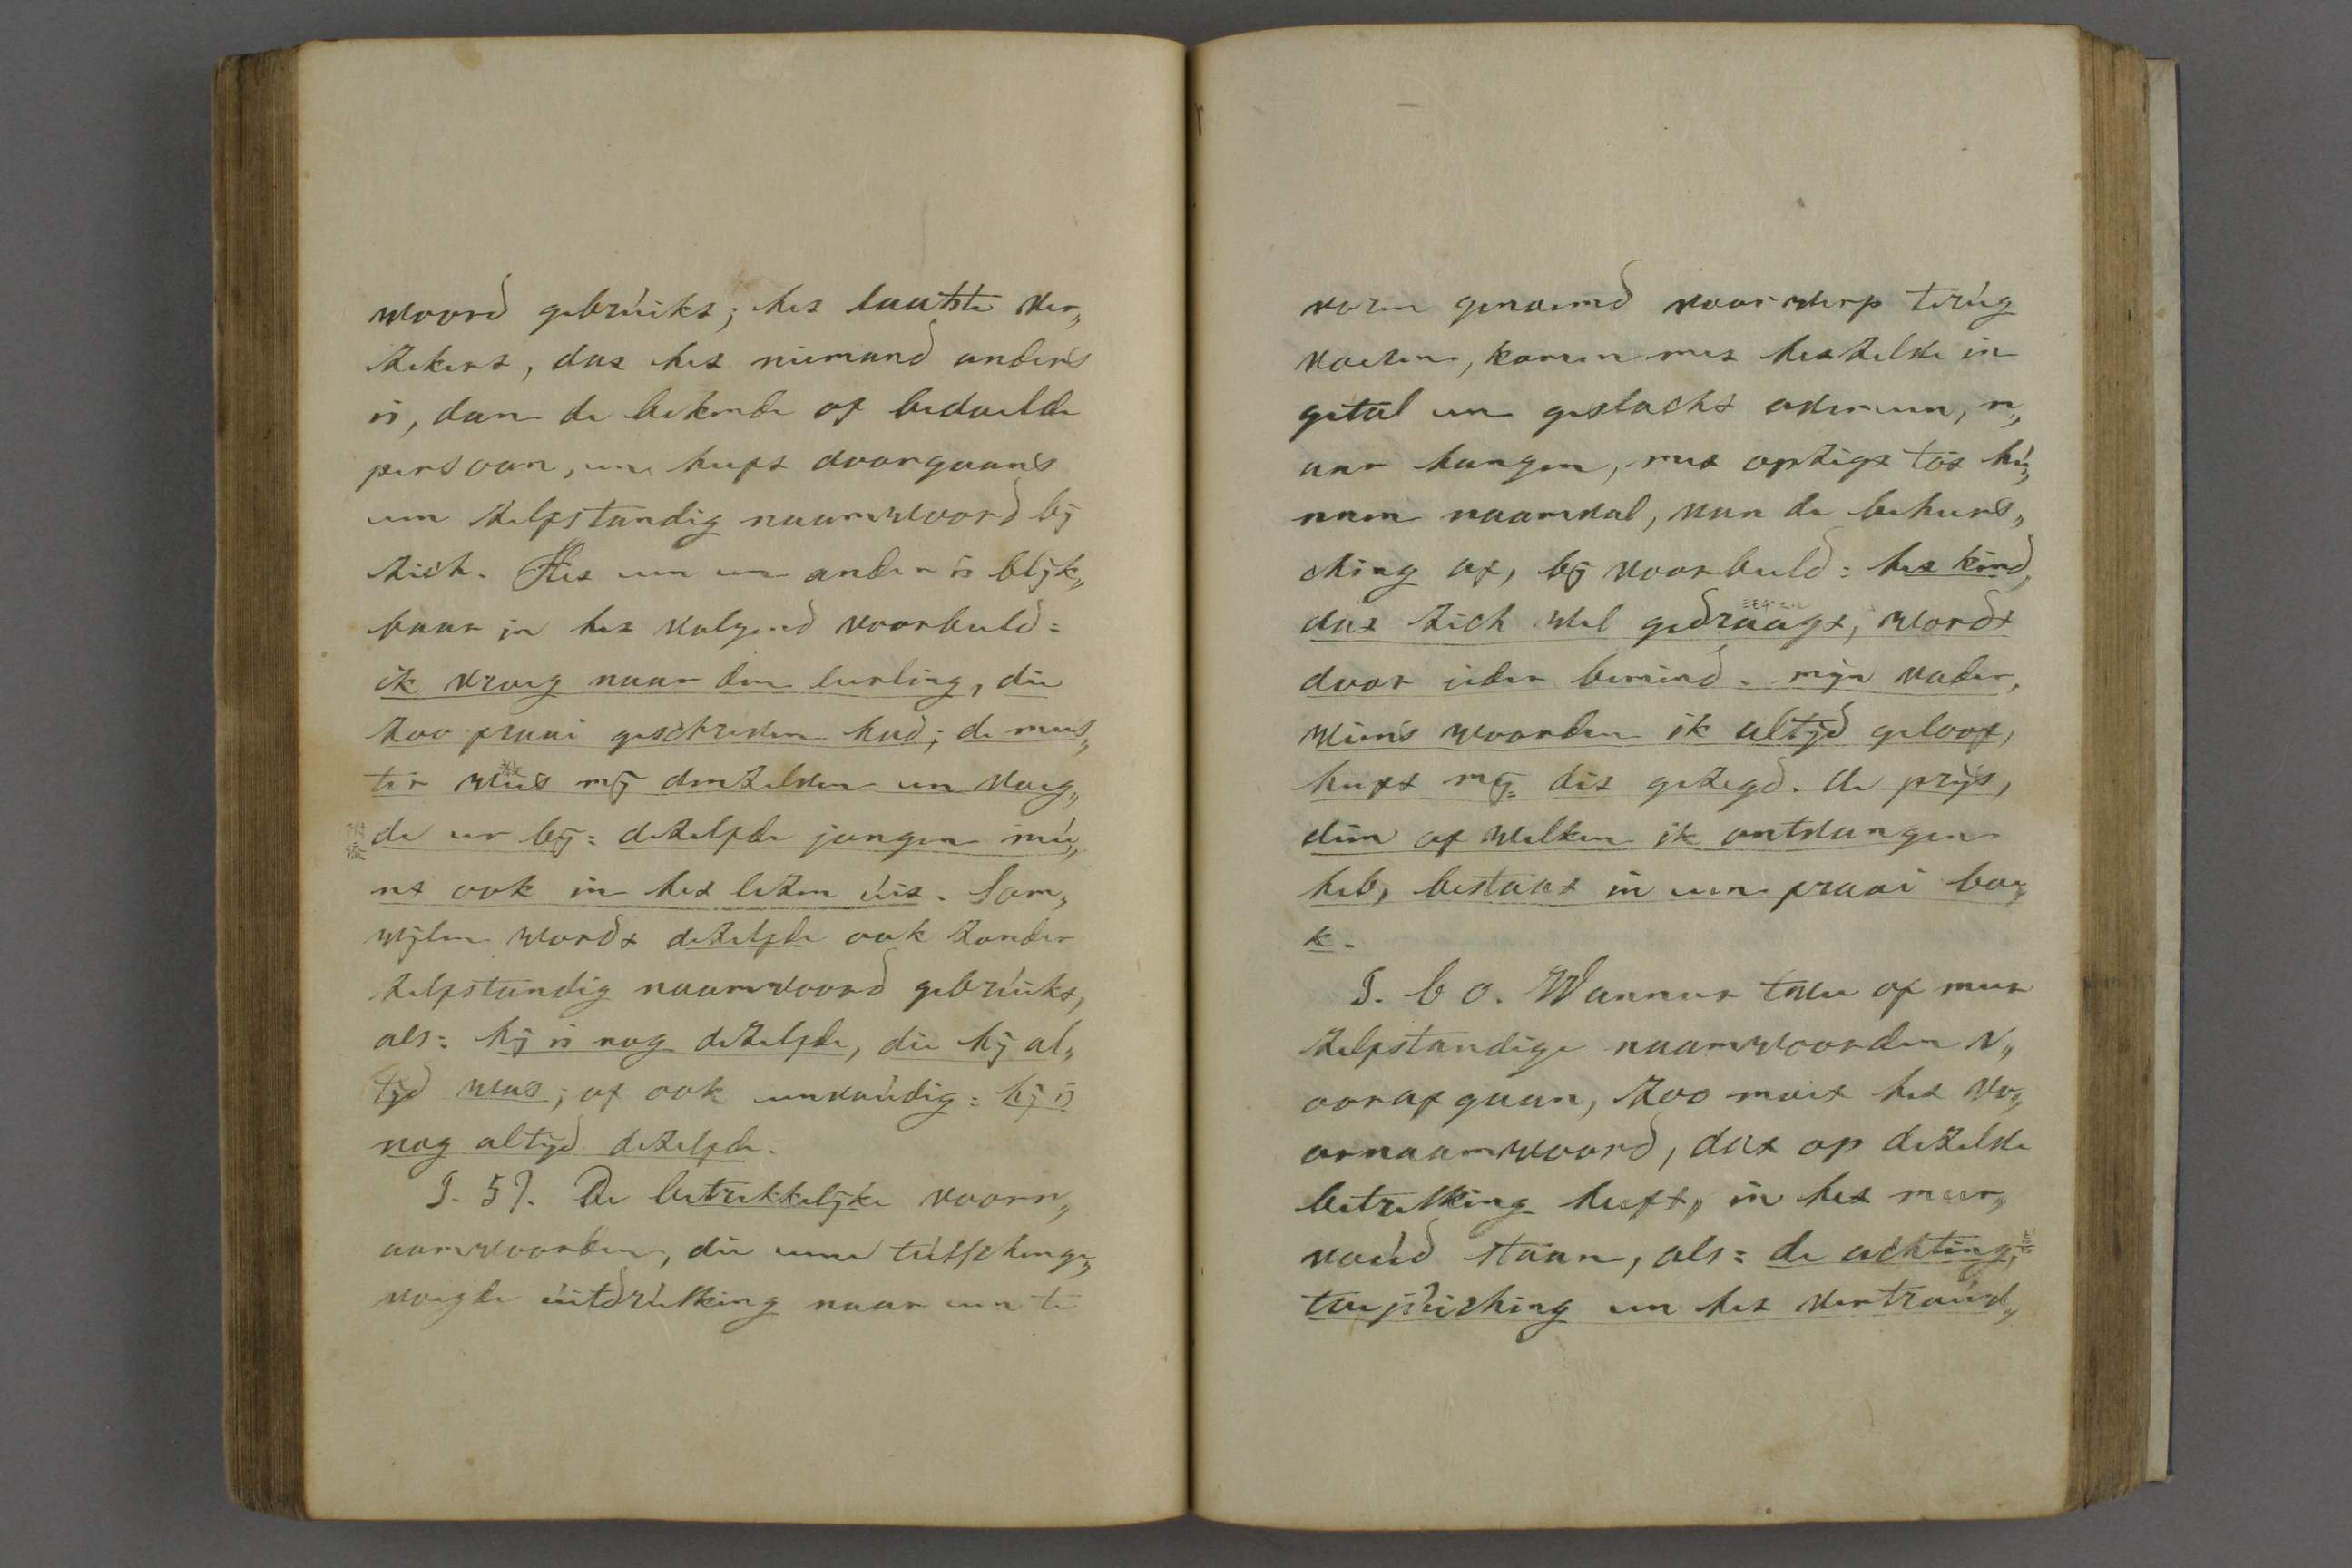 woord gebruikt; het laatste ver„
zekert, dat het niemand anders
is, dan de bekende of bedoelde
persoon, en heeft doorgaans
een zelfstandig naamwoord bij
zich. Het een en ander is blijk„
baar in het volgend voorbeeld:
ik vroeg naar den leerling, die
zoo fraai geschreven had; de mees„
ter wees mij denzelven en voeg„
de er bij: dezelfde jongen mu„
nt ook in het lezen uit. Som„
wijlen wordt dezelfde ook zonder
zelfstandig naamwoord gebruikt,
als: hij is nog dezelfde, die hij al„
tijd was; of ook eenvoudig: hij is
nog altijd dezelfde.
§. 59. De betrekkelijke voorn„
aamwoorden, die eene tusschenge„
voegde uitdrukking naar een te
voren genoemd voorwerp terug
voeren, komen met hetzelve in
getal en geslacht overeen, m„
aar hangen, met opzigt tot hu„
nnen naamval, van de beheers„
ching af, bij voorbeeld: het kind,
dat zich wel gedraagt, wordt
door ieder bemind. mijn vader,
wiens woorden ik altijd geloof,
heeft mij dit gezegd. de prijs,
dien of welken ik ontvangen
heb, bestaat in een fraai boe„
k.
§. 60. Wanneer twee of meer
zelfstandige naamwoorden v„
oorafgaan, zoo moet het vo„
ornaamwoord, dat op dezelve
betrekking heeft, in het meer„
voud staan, als: de achting,
toejuiching en het vertrouw„
附
添